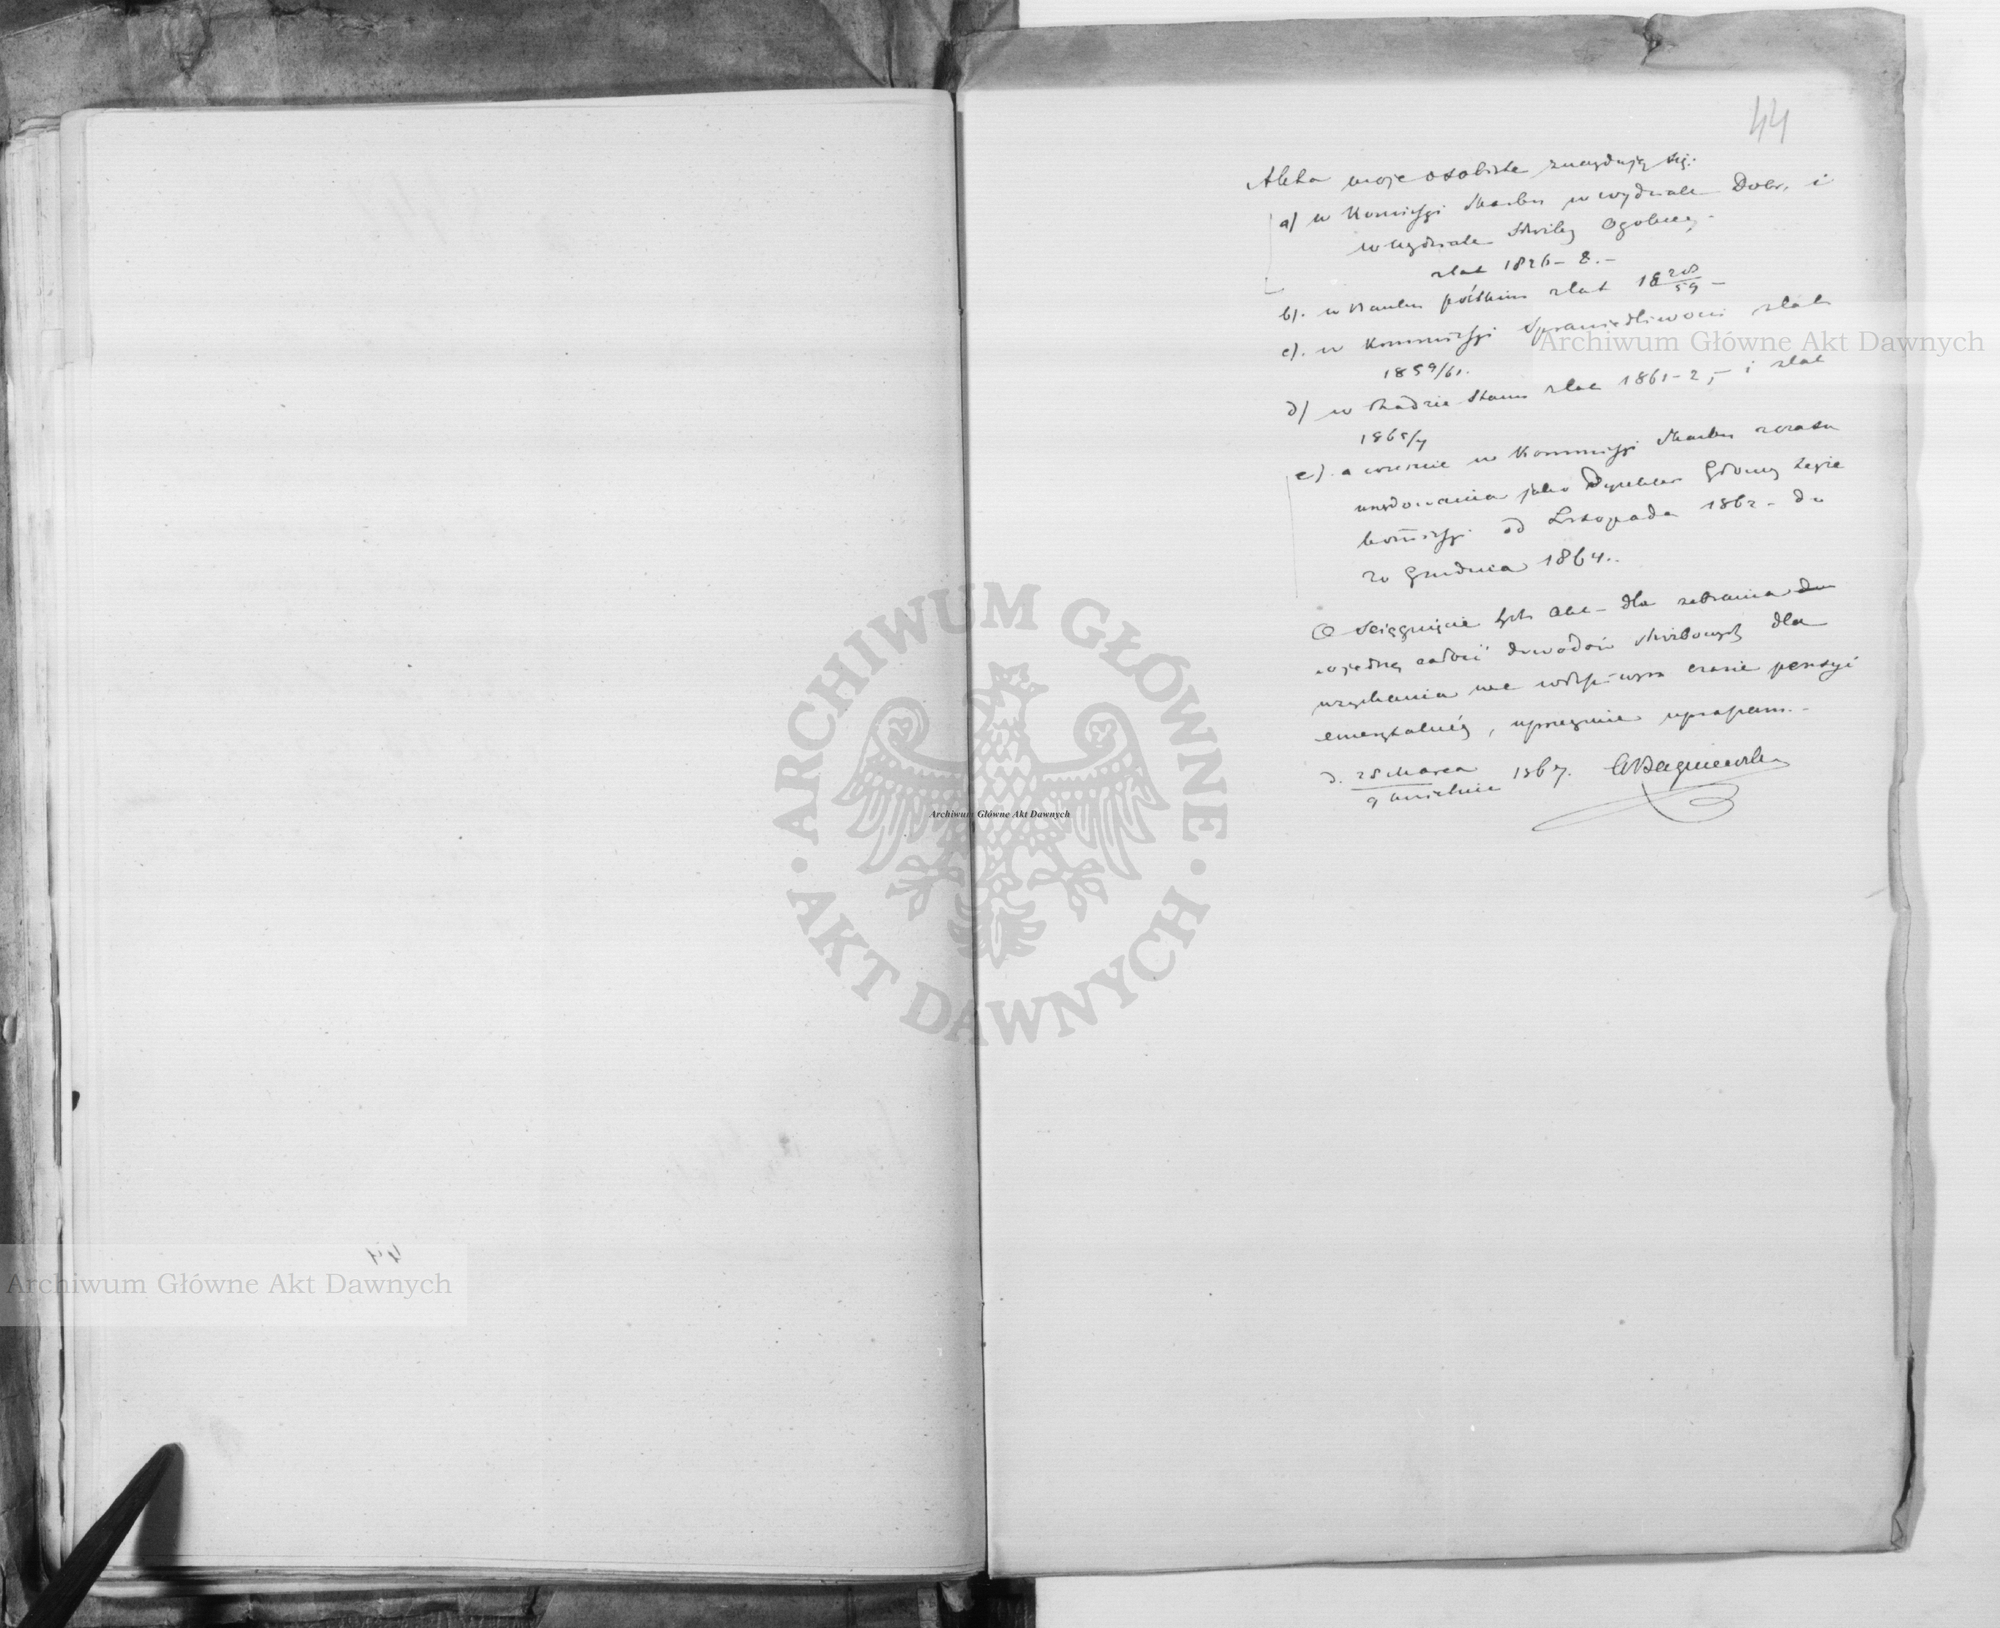 44
Akta moje osobiste znajdują się:
a) w Komissyi Skarbu w wydziale Dobr. i
w wydziale Służby Ogolnej
z lat 1826–8.–
b). w Banku polskim z lat 18 28/59 –
c). w Kommissyi Sprawiedliwości z lat
1859/61.
d) w Radzie Stanu z lat 1861–2, – i z lat
1865/7
e). a w Kommissyi Skarbu z czasu
urzędowania jako Dyrektor Główny tejże
Kommissyi od Listopada 1862 – do
20 Grudnia 1864.
O ściągnięcie tych akt – dla zebrania
w jedną całość dowodów służbowych dla
uzyskania we czasie pensyi
emerytalnéj, uprzejmie upraszam.–
d. 28 Marca 1867.
9 Kwietnia
Archiwum Główne Akt Dawnych
ARCHIWUM GŁÓWNE · AKT DAWNYCH ·
Archiwum Główne Akt Dawnych
Archiwum Główne Akt Dawnych